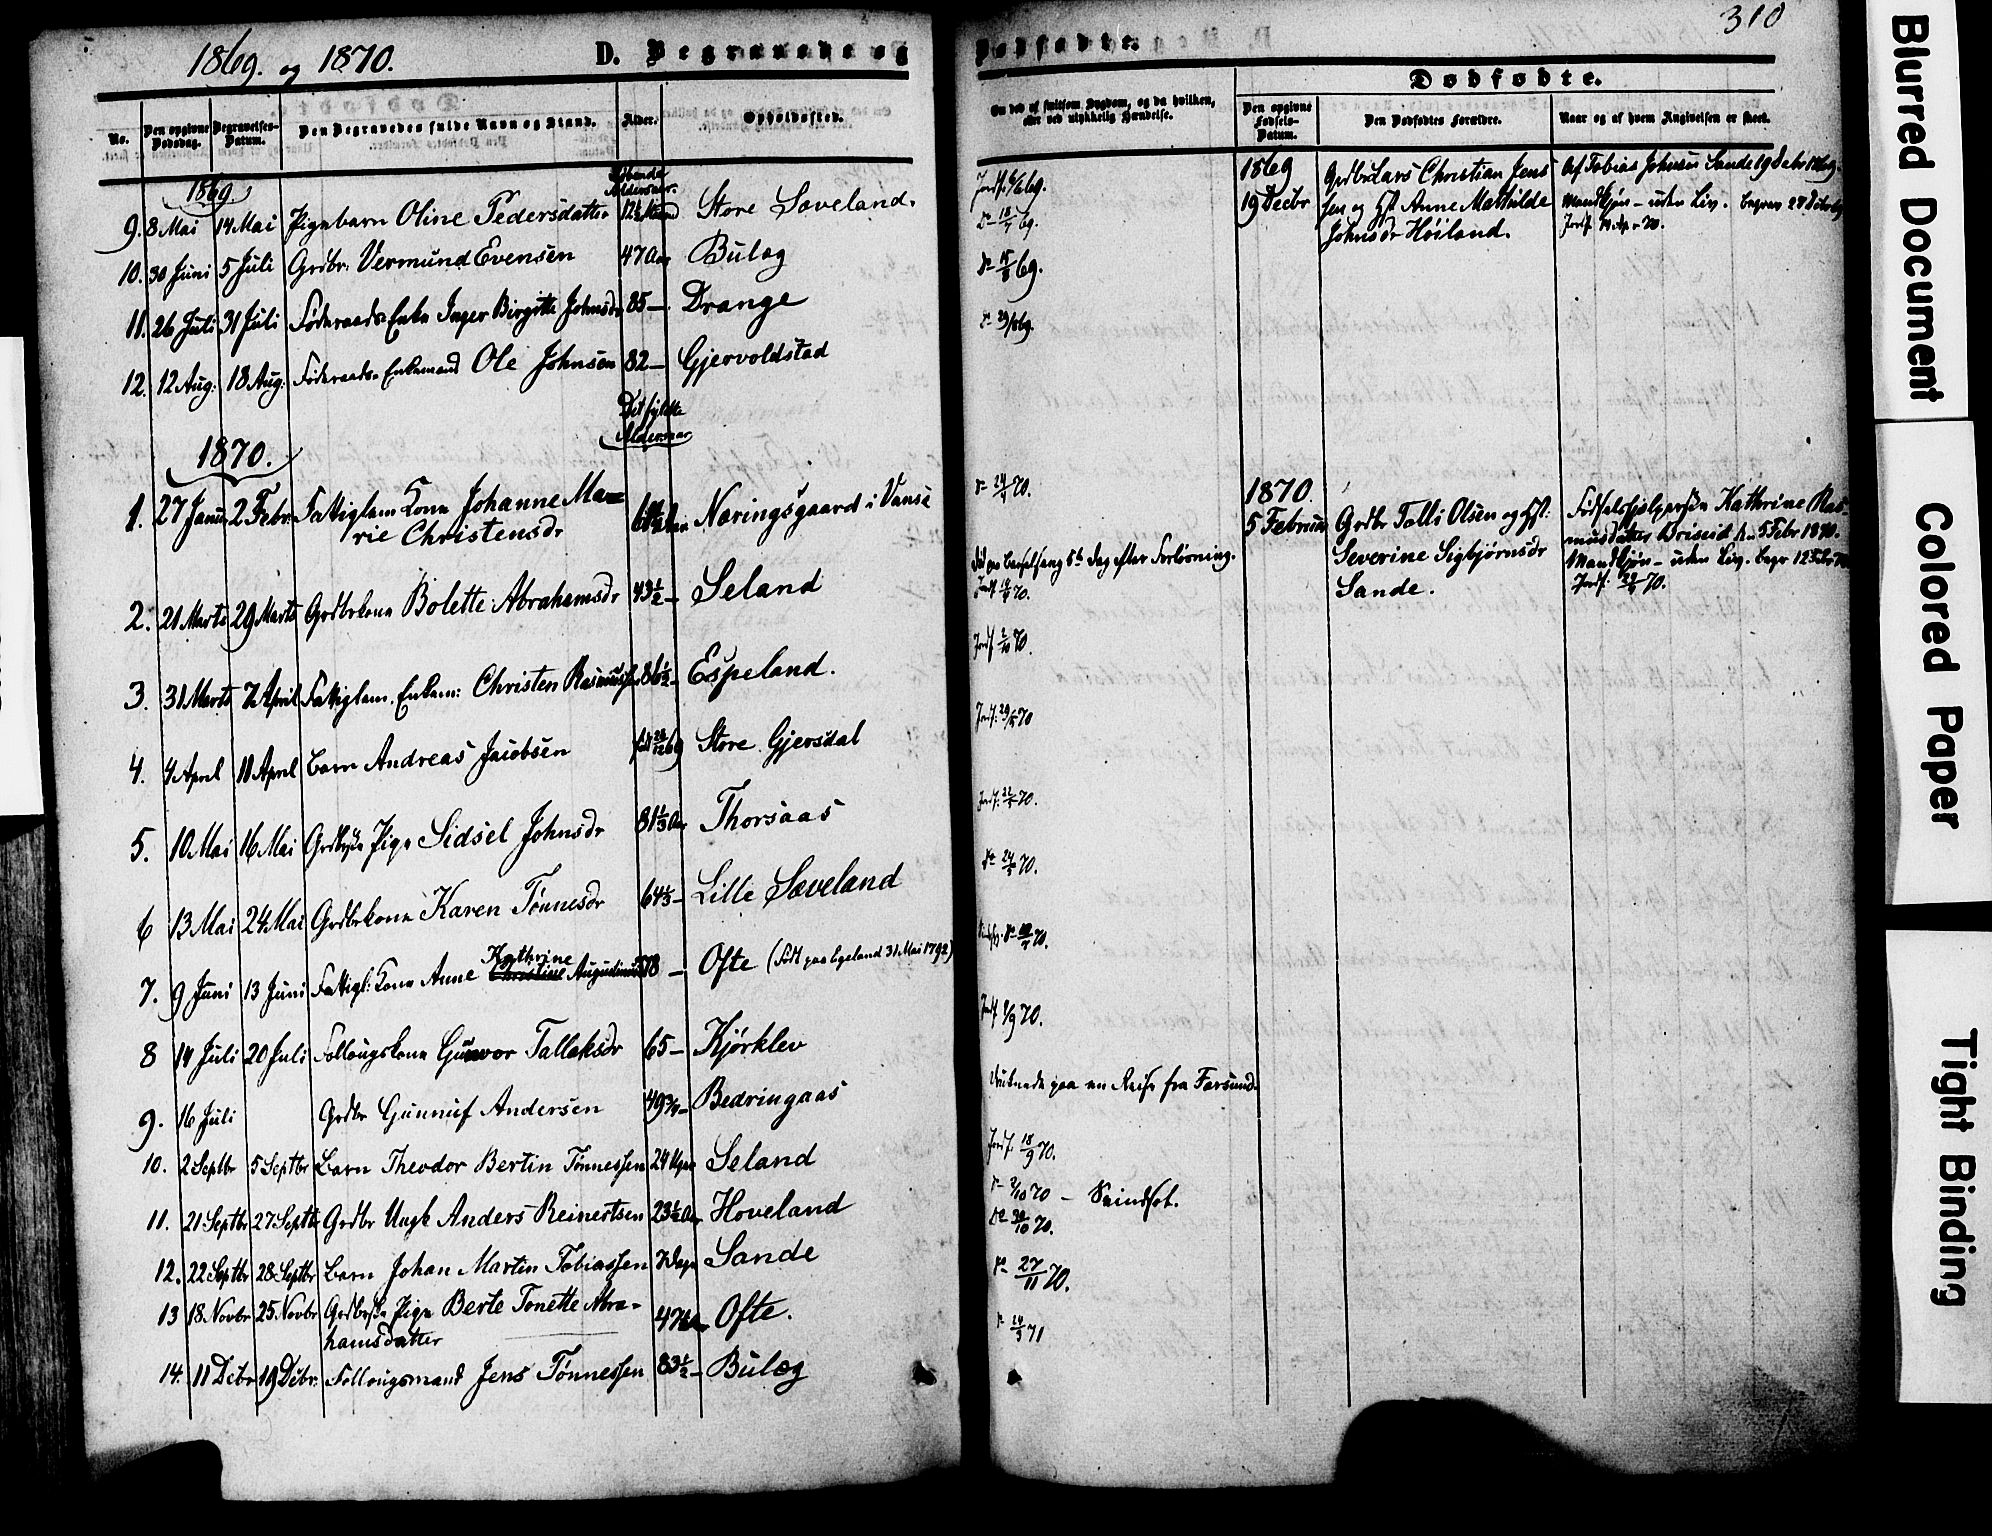 1869. og 1870.
D. Begravede og
Dødfødte.
310
No.
Den opgivne Dødsdag.
Begravelses-Datum.
Den Begravedes fulde Navn og Stand.
Alder.
Opholdssted.
Om død af smitsom Sygdom, og da hvilken, eller ved ulykkelig Hændelse.
Dødfødte.
Den opgivne Fødsels-Datum.
Den Dødfødtes Forældre.
Naar og af hvem Angivelsen er skeet.
1869
Løbende Aldersaar.
9. 8 Mai 14 Mai Pigebarn Oline Pedersdatter Store Sæveland.
10. 30 Juni 5 Juli Grdbr: Vermund Evensen 47 Aar Bulæg
11. 26 Juli 31 Juli Føderaads Enke Inger Birgitte Johnsdr 85 — Drange
12. 12 Aug: 18 Aug: Føderaads Enkemand Ole Johnsen 82 — Gjervoldstad
Det fyldte Aldersaar
1870.
1. 27 Januar 2 Febr. Fattiglem Kone Johanne Ma=
rie Christensdr
Næringsgaard i Vanse
2. 21 Marts 29 Marts Grdbrkone Bolette Abrahamsdr 43 1/2 — Seland
3. 31 Marts 7 April Fattiglem. Enkem: Christen Rasmussen 86 1/2 — Espeland.
4. 4 April 11 April Barn Andreas Jacobsen Store Gjersdal
5. 10 Mai 16 Mai Pige Sidsel Johnsdr 81 1/3 Aar Thorsaas
6 13 Mai 24 Mai Grdbrkone Karen Tønnesdr Lille Sæveland
Kathrine
7. 9 Juni 13 Juni Fattigl: Kone Anne Christine Augustinusd 78 — Ofte (Født paa Egeland 31 Mai 1792)
8 14 Juli 20 Juli Follougskone Gunvor Tallaksdr 65 — Kjørklev
9. 16 Juli Grdbr Gunnuf Andersen 49 3/4 — Bedringaas
10. 2 Septbr 5 Septbr Barn Theodor Bertin Tønnessen 24 Uger Seland
11. 21 Septbr 27 Septbr Grdbr Ungk Anders Reinertsen 23 1/2 Aar Hoveland
12. 22 Septbr 28 Septbr Barn Johan Martin Tobiassen 7 Dage Sande
13 18 Novbr 25 Novbr Pige Berte Tonette Abra-
hamsdatter
47 Aar Ofte.
14. 11 Debr 19 Debr. Follougsmand Jens Tønnessen 83 1/2 — Bulæg
Jordf. 6/6 69.
Do 18/7 69.
Do 15/8 69.
Do 29/8 69.
Do 24/4 70.
Død paa Barselseng 5te Dag efter Forløsning.
Jordf. 70.
Jordf 2/10 70.
Jordf: 29/5 70
Jordf: 70.
Do 70.
Do 70.
Jordf 70.
Druknede paa en Reise fra Farsund.
Jordf. 18/9 70.
Do 2/10 70 — Svindsot.
Do 30/10 70.
Do 27/11 70.
Do 71
1869
19 Decbr
Grdbr Lars Christian Jens
sen og Hst Anne Mathilde
Johnsdr Høiland.
Af Tobias Johnsen Sande 19 Debr 1869.
Mandkjøn — uden Liv.
1870.
5 Februar
Grdbr Talli Olsen og Hst:
Severine Sigbjørnsdr
Sande.
Fødselshjelpersken Kathrine Ras-
musdatter Briseid d. 5 Febr 1870.
Mandkjøn — uden Liv. begr 12 Febr 70
Jordf. 70.
Blurred Document
Colored Paper
Tight Binding